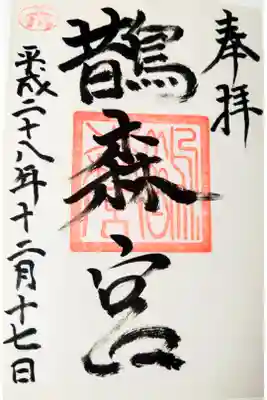 奉拝
鵲森宮
平成二十八年十二月十七日